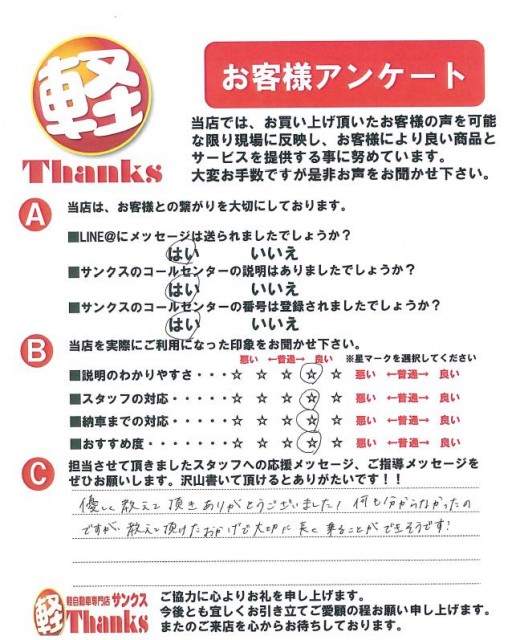 軽
Thanks
お客様アンケート
当店では、お買い上げ頂いたお客様の声を可能
な限り現場に反映し、お客様により良い商品と
サービスを提供する事に努めています。
大変お手数ですが是非お声をお聞かせ下さい。
A 当店は、お客様との繋がりを大切にしております。
■LINE@にメッセージは送られましたでしょうか？
はい いいえ
■サンクスのコールセンターの説明はありましたでしょうか？
はい いいえ
■サンクスのコールセンターの番号は登録されましたでしょうか？
はい いいえ
B 当店を実際にご利用になった印象をお聞かせ下さい。
悪い ←普通→ 良い ※星マークを選択してください
■説明のわかりやすさ・・・☆ ☆ ☆ ☆ ☆ 悪い ←普通→ 良い
■スタッフの対応・・・・・☆ ☆ ☆ ☆ ☆ 悪い ←普通→ 良い
■納車までの対応・・・・・☆ ☆ ☆ ☆ ☆ 悪い ←普通→ 良い
■おすすめ度・・・・・・・☆ ☆ ☆ ☆ ☆ 悪い ←普通→ 良い
C 担当させて頂きましたスタッフへの応援メッセージ、ご指導メッセージを
ぜひお願いします。沢山書いて頂けるとありがたいです！！
優しく教えて頂きありがとうございました！何も分からなかったの
ですが、教えて頂けたおかげで大切に長く乗ることができそうです！
軽 軽自動車専門店 サンクス
Thanks
ご協力に心よりお礼を申し上げます。
今後とも宜しくお引き立てご愛顧の程お願い申し上げます。
またのご来店を心からお待ちしております。